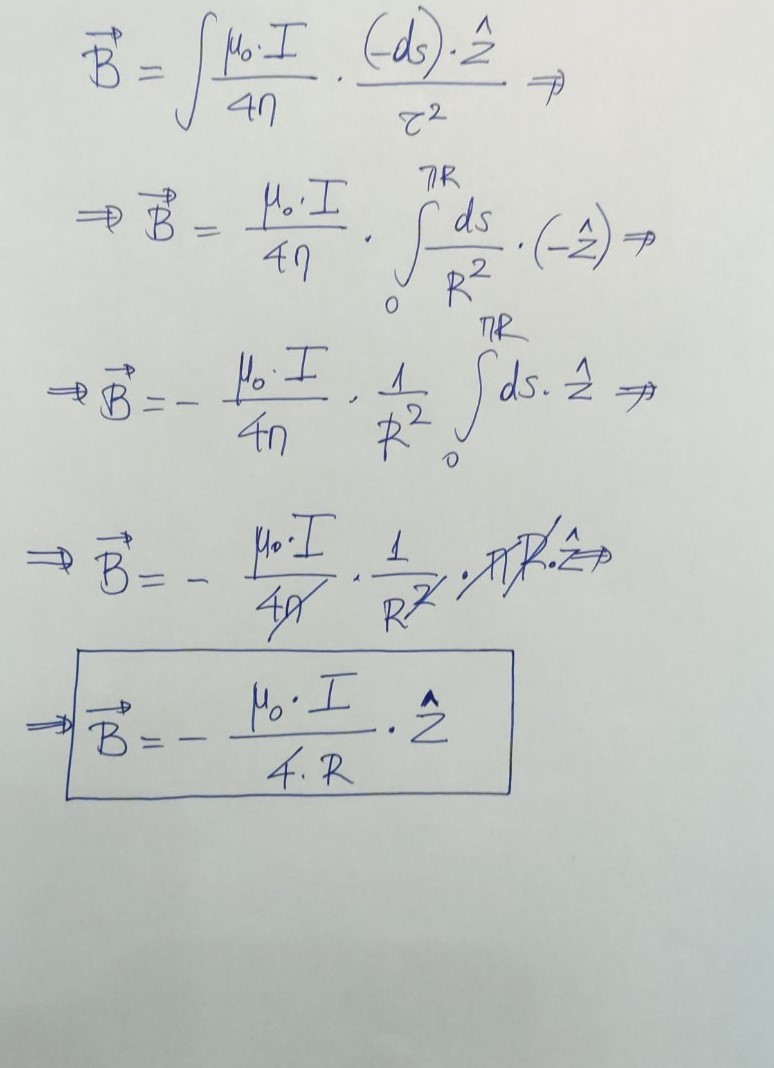 $\vec{B} = \int \frac{\mu_0 \cdot I}{4\pi} \cdot \frac{(-ds) \cdot \hat{z}}{r^2} \Rightarrow$
$\Rightarrow \vec{B} = \frac{\mu_0 \cdot I}{4\pi} \cdot \int_0^{\pi R} \frac{ds}{R^2} \cdot (-\hat{z}) \Rightarrow$
$\Rightarrow \vec{B} = - \frac{\mu_0 \cdot I}{4\pi} \cdot \frac{1}{R^2} \int_0^{\pi R} ds \cdot \hat{z} \Rightarrow$
$\Rightarrow \vec{B} = - \frac{\mu_0 \cdot I}{4\cancel{\pi}} \cdot \frac{1}{R^{\cancel{2}}} \cdot \cancel{\pi} \cancel{R} \cdot \hat{z} \Rightarrow$
$\Rightarrow \vec{B} = - \frac{\mu_0 \cdot I}{4 \cdot R} \cdot \hat{z}$